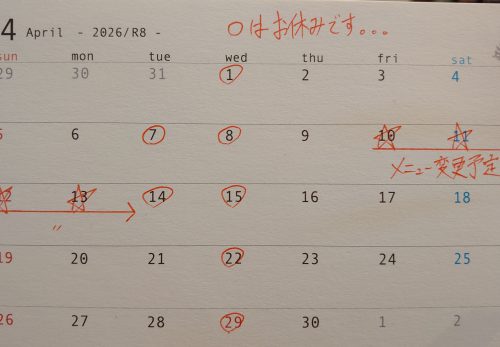 4 April - 2026/R8 - ○はお休みです。。。
sun mon tue wed thu fri sat
29 30 31 1 2 3 4
5 6 7 8 9 10 11
メニュー変更予定
12 13 14 15 16 17 18
〃
19 20 21 22 23 24 25
26 27 28 29 30 1 2